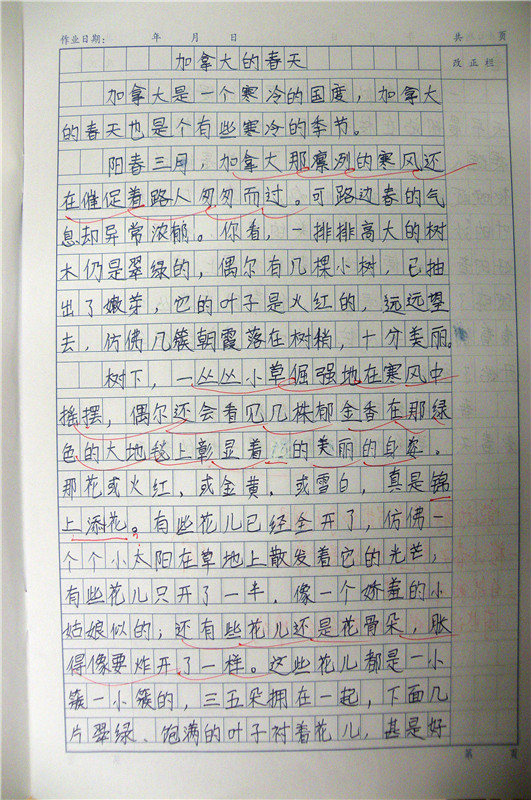 作业日期: 年 月 日 共 页
加拿大的春天 改正栏
加拿大是一个寒冷的国度，加拿大
的春天也是个有些寒冷的季节。
阳春三月，加拿大那凛冽的寒风还
在催促着路人匆匆而过。可路边春的气
息却异常浓郁。你看，一排排高大的树
木仍是翠绿的，偶尔有几棵小树，已抽
出了嫩芽，它的叶子是火红的，远远望
去，仿佛几簇朝霞落在树梢，十分美丽。
树下，一丛丛小草倔强地在寒风中
摇摆，偶尔还会看见几株郁金香在那绿
色的大地毯上彰显着的美丽的身姿。
那花或火红，或金黄，或雪白，真是锦
上添花。有些花儿已经全开了，仿佛一
个个小太阳在草地上散发着它的光芒，
有些花儿只开了一半，像一个娇羞的小
姑娘似的；还有些花儿还是花骨朵，胀
得像要炸开了一样。这些花儿都是一小
簇一小簇的，三五朵拥在一起，下面几
片翠绿、饱满的叶子衬着花儿，甚是好
第 页